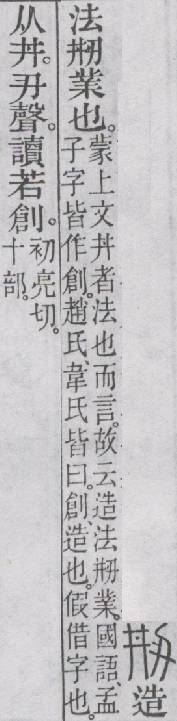 造
法刱業也。
蒙上文丼者法也而言。故云造法刱業。國語、孟
子字皆作創。趙氏、韋氏皆曰。創、造也。假借字也。
从丼。刅聲。讀若創。
初亮切。
十部。